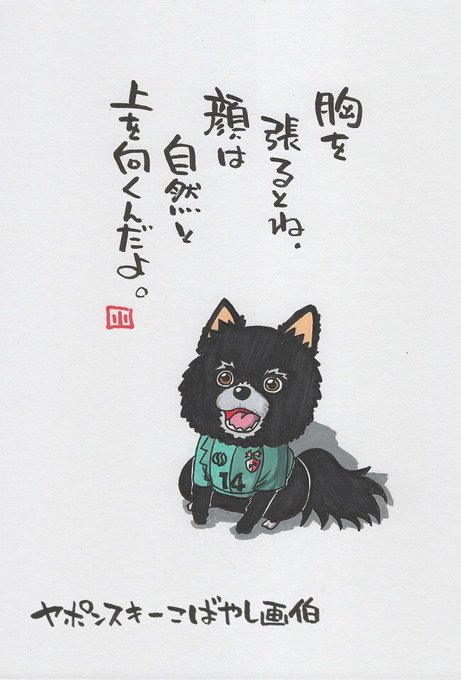 胸を
張るとね、
顔は
自然と
上を向くんだよ。
小
14
ヤポンスキーこばやし画伯